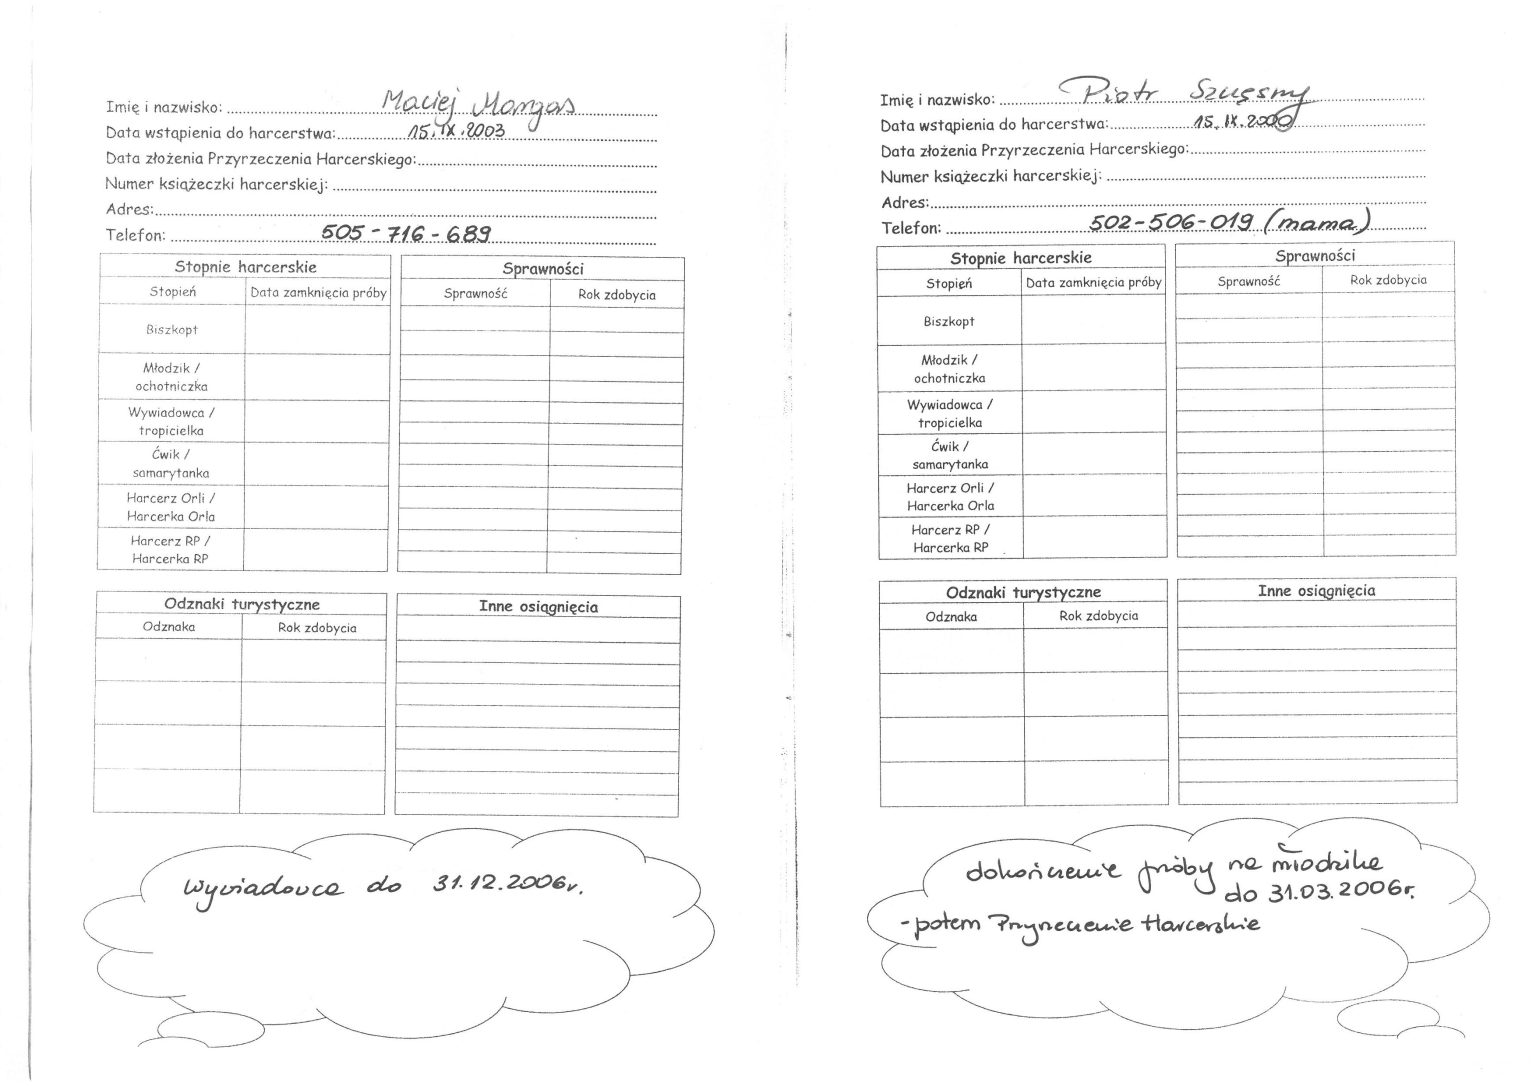 Imię i nazwisko: Maciej Mangas
Data wstąpienia do harcerstwa: 15.IX.2003
Data złożenia Przyrzeczenia Harcerskiego:
Numer książeczki harcerskiej:
Adres:
Telefon: 505-716-689
Stopnie harcerskie
Stopień Data zamknięcia próby
Biszkopt
Młodzik /
ochotniczka
Wywiadowca /
tropicielka
Ćwik /
samarytanka
Harcerz Orli /
Harcerka Orla
Harcerz RP /
Harcerka RP
Sprawności
Sprawność Rok zdobycia
Odznaki turystyczne
Odznaka Rok zdobycia
Inne osiągnięcia
Wywiadowca do 31.12.2006r.
Imię i nazwisko: Piotr Szczęsny
Data wstąpienia do harcerstwa: 15.IX.2000
Data złożenia Przyrzeczenia Harcerskiego:
Numer książeczki harcerskiej:
Adres:
Telefon: 502-506-019 (mama)
Stopnie harcerskie
Stopień Data zamknięcia próby
Biszkopt
Młodzik /
ochotniczka
Wywiadowca /
tropicielka
Ćwik /
samarytanka
Harcerz Orli /
Harcerka Orla
Harcerz RP /
Harcerka RP
Sprawności
Sprawność Rok zdobycia
Odznaki turystyczne
Odznaka Rok zdobycia
Inne osiągnięcia
dokończenie próby na młodzika
do 31.03.2006r.
- potem Przyrzeczenie Harcerskie